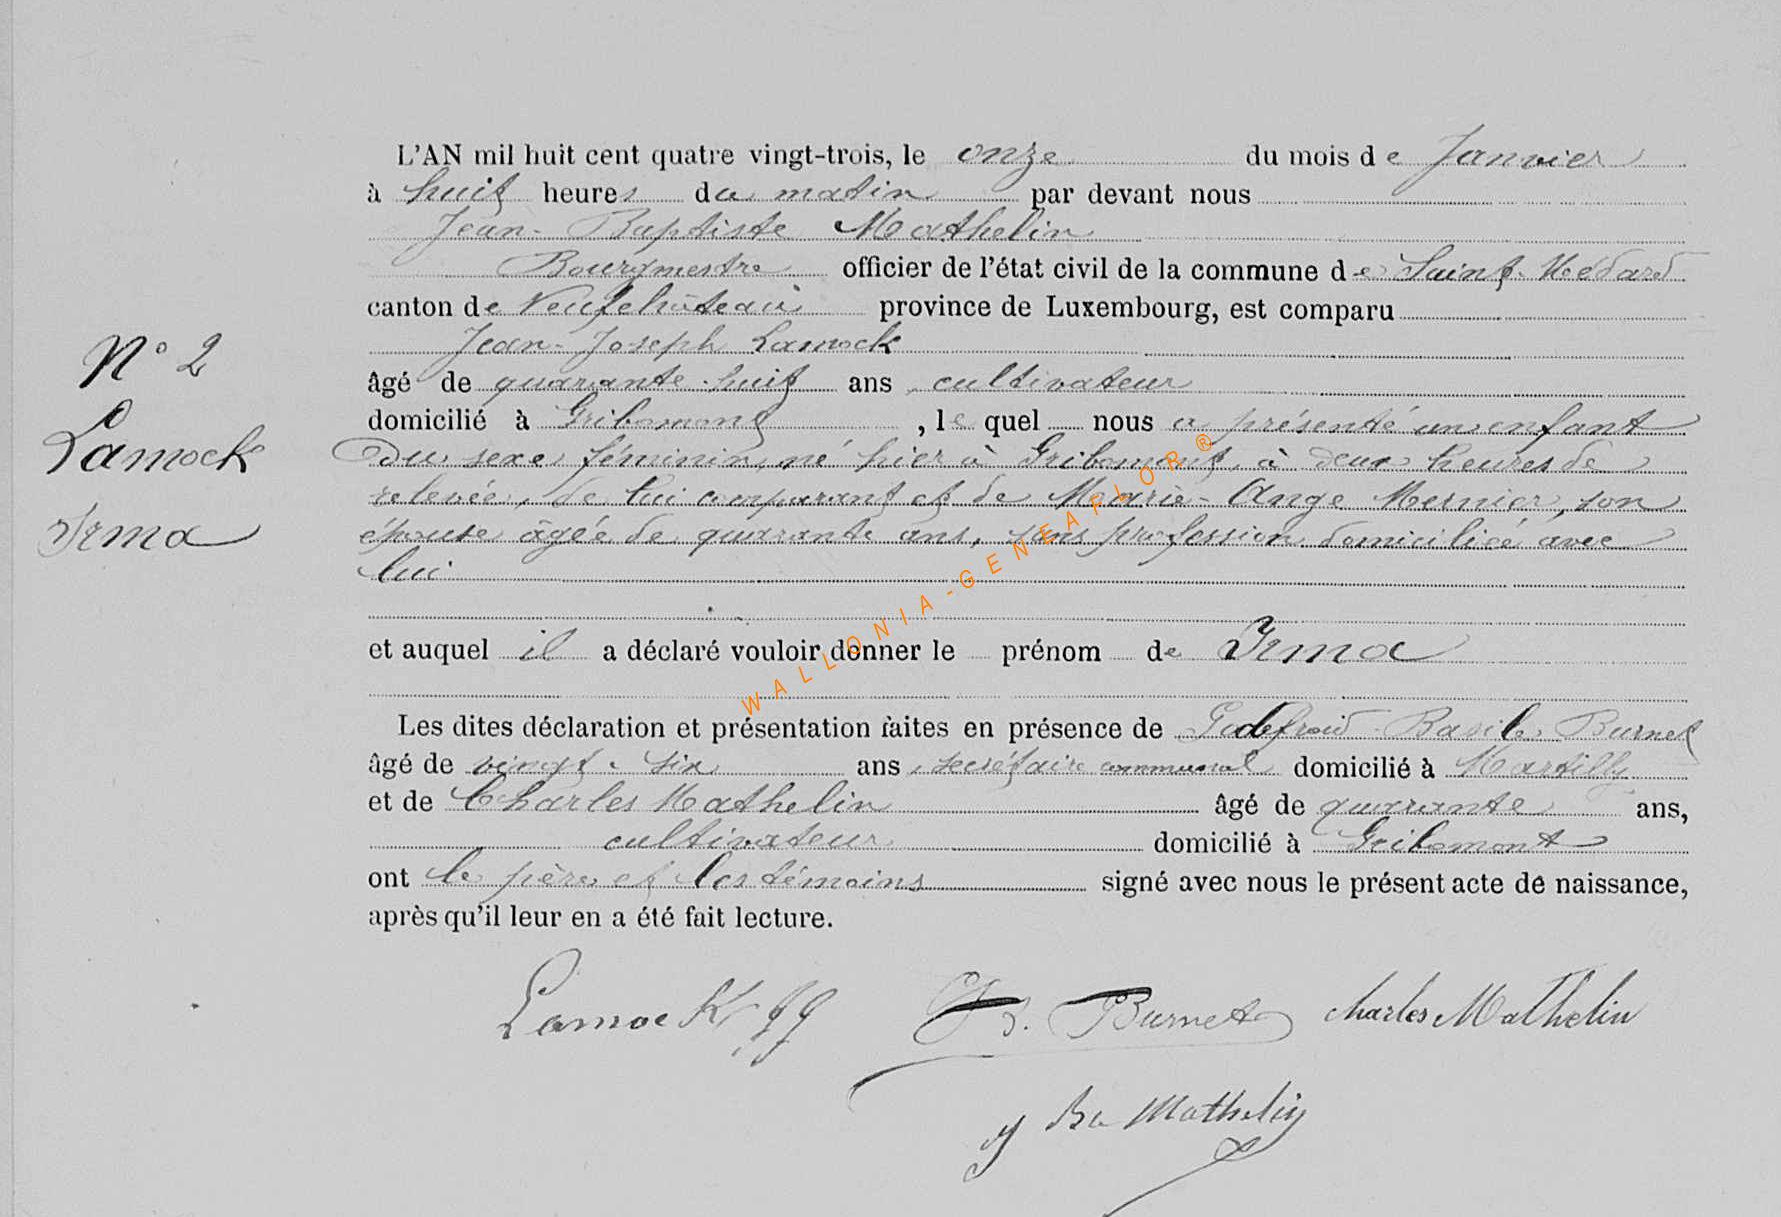 L'AN mil huit cent quatre vingt-trois, le onze du mois de Janvier
à huit heures du matin par devant nous
Jean-Baptiste Mathelin
Bourgmestre officier de l'état civil de la commune de Saint-Médard
canton de Neufchâteau province de Luxembourg, est comparu
Jean-Joseph Lamock
âgé de quarante-huit ans, cultivateur
domicilié à Gribomont, le quel nous a présenté un enfant
du sexe féminin, né hier à Gribomont, à deux heures de
relevée, de lui comparant et de Marie-Ange Mernier, son
épouse âgée de quarante ans, sans profession domiciliée avec
lui
et auquel il a déclaré vouloir donner le prénom de Irma
Les dites déclaration et présentation faites en présence de Godefroid-Basile Burnet
âgé de vingt-six ans, secrétaire communal domicilié à Martilly
et de Charles Mathelin âgé de quarante ans,
cultivateur domicilié à Gribomont
ont le père et les témoins signé avec nous le présent acte de naissance,
après qu'il leur en a été fait lecture.
N° 2
Lamock
Irma
Lamock, JJ
Burnet
Charles Mathelin
J Bte Mathelin
WALLONIA-GENEAFLOR®